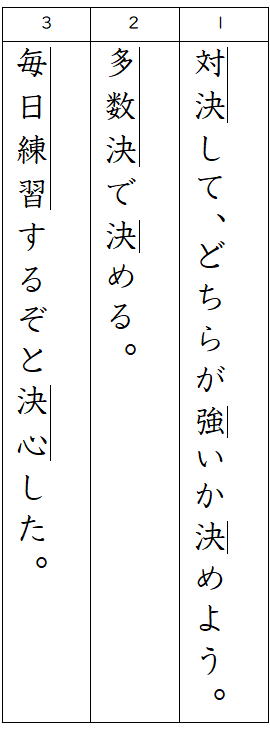 1
対決して、どちらが強いか決めよう。
2
多数決で決める。
3
毎日練習するぞと決心した。